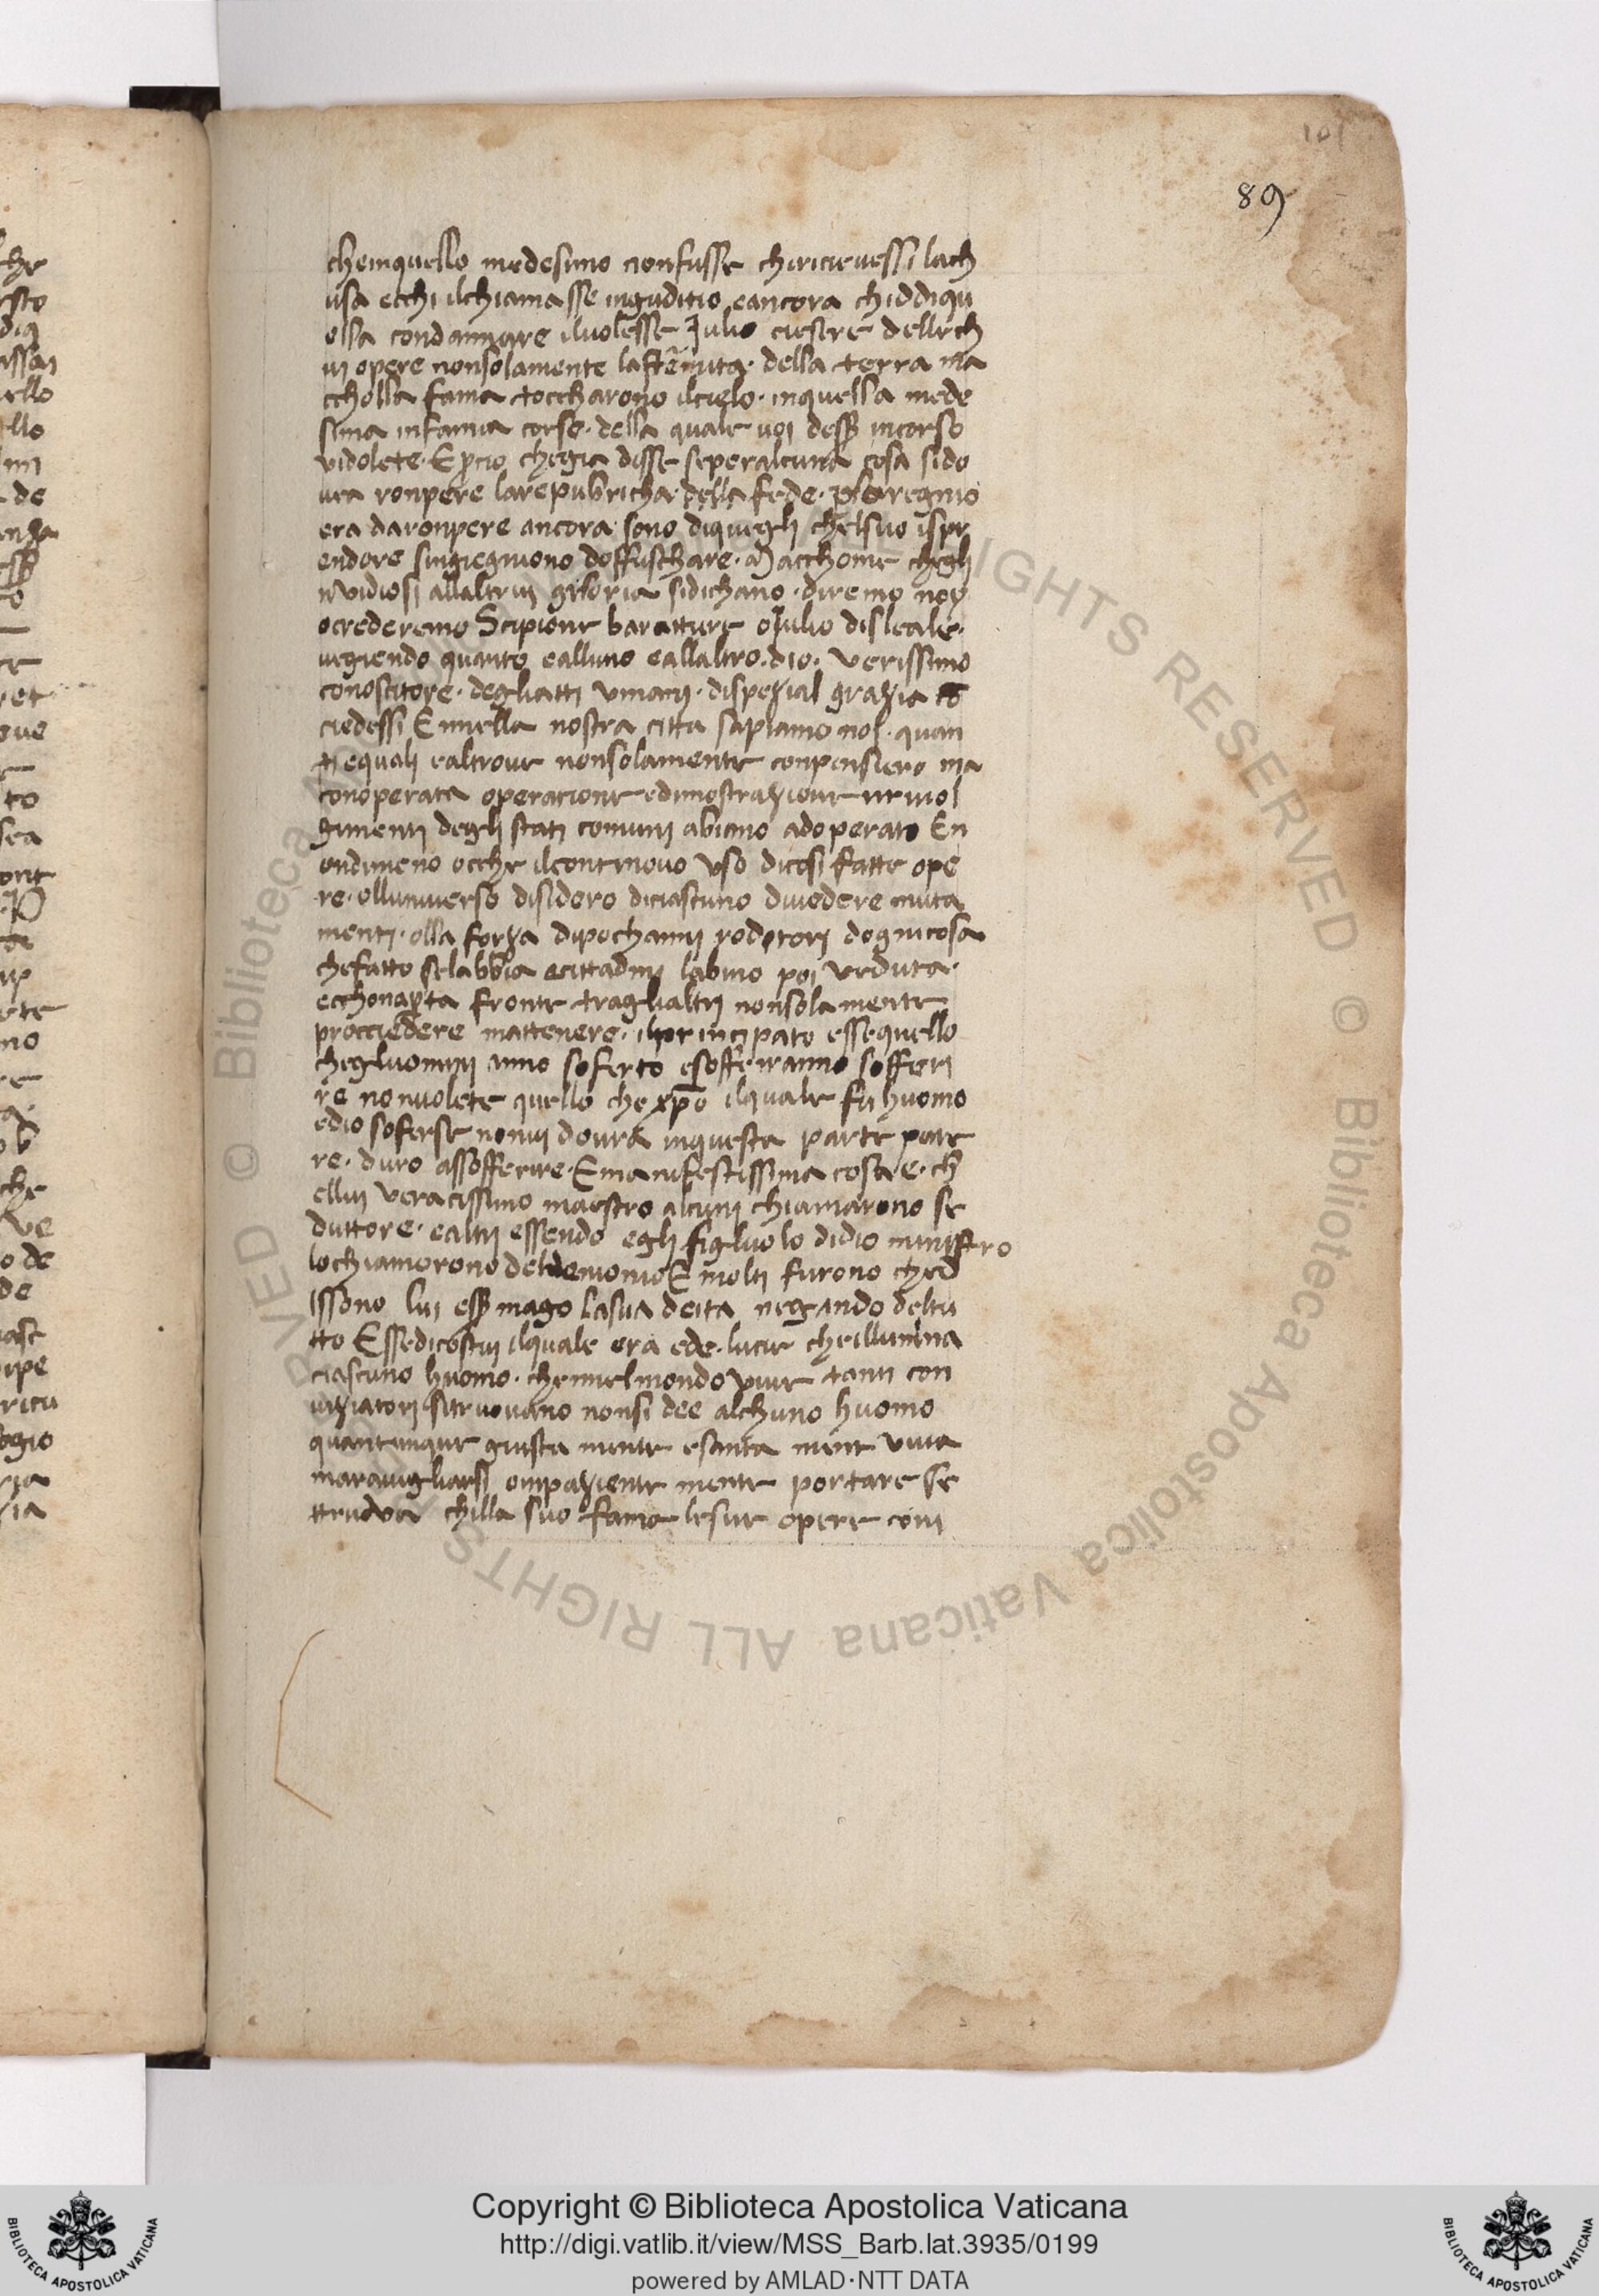 101
89
cheinquello medesimo nonfusse chiricievessi lach
usa ecchi ilchiamasse ingiuditio eancora chiddiqu
ella condannare ilvolesse Julio ciesere dellech
ui opere nonsolamente lastremita della terra ma
ccholla fama toccharono ilcielo inquella mede
sima infamia corse della quale voi dessere incorso
vidolete E percio chegia disse seperalcuna cosa sido
vea ronpere larepubricha della fede regnio
era daronpere ancora sono diquegli chelsuo ispr
endore singiegniono doffuschare Macchome chegli
nvidiosi allaltrui griloria sidichano diremo noy
ocrederemo Scipione barattiere oJulio disleale
vegiendo quanto ealluno eallaltro dio verissimo
conoscitore degliatti umani dispezial grazia co
ciedessi Ennella nostra citta sapiamo noi quan
ti equali ealtrove nonsolamente conpensiero ma
conoperata operacione edimostrazione nerivol
gimenti degli stati comuni abiamo adoperato En
ondimeno ocche ilcontinovo uso dicosi fatte ope
re olluniverso disidero diciascuno divedere muta
menti olla forza dipochanni roditori dognicosa
chefatto selabbia ecittadini labino poi veduta
ecchonaperta fronte traglialtri nonsolamente
procciedere mattenere ilprincipato essequello
chegluomini anno soferto esofferiranno sofferi
re nonvolete quello che xpo ilquale fu huomo
edio soferse nonvi dovra inquesta parte pare
re duro assofferire E manifestissima cosa e ch
ellui veracissimo maestro alcuni chiamarono se
duttore ealtri essendo egli figluolo didio ministro
lochiamorono deldemonio E molti furono ched
issono lui essere mago lasua deita negando deltu
tto Essedicostui ilquale era ede luce cheillumina
ciascuno huomo chennelmondo vive tanti con
viziatori sitruovano nonsi dee alchuno huomo
quantunque giusta mente esanta mente viva
maravigliarsi onpaziente mente portare se
ttruova chilla suo fama lesue opere coni
Copyright © Biblioteca Apostolica Vaticana
http://digi.vatlib.it/view/MSS_Barb.lat.3935/0199
powered by AMLAD·NTT DATA